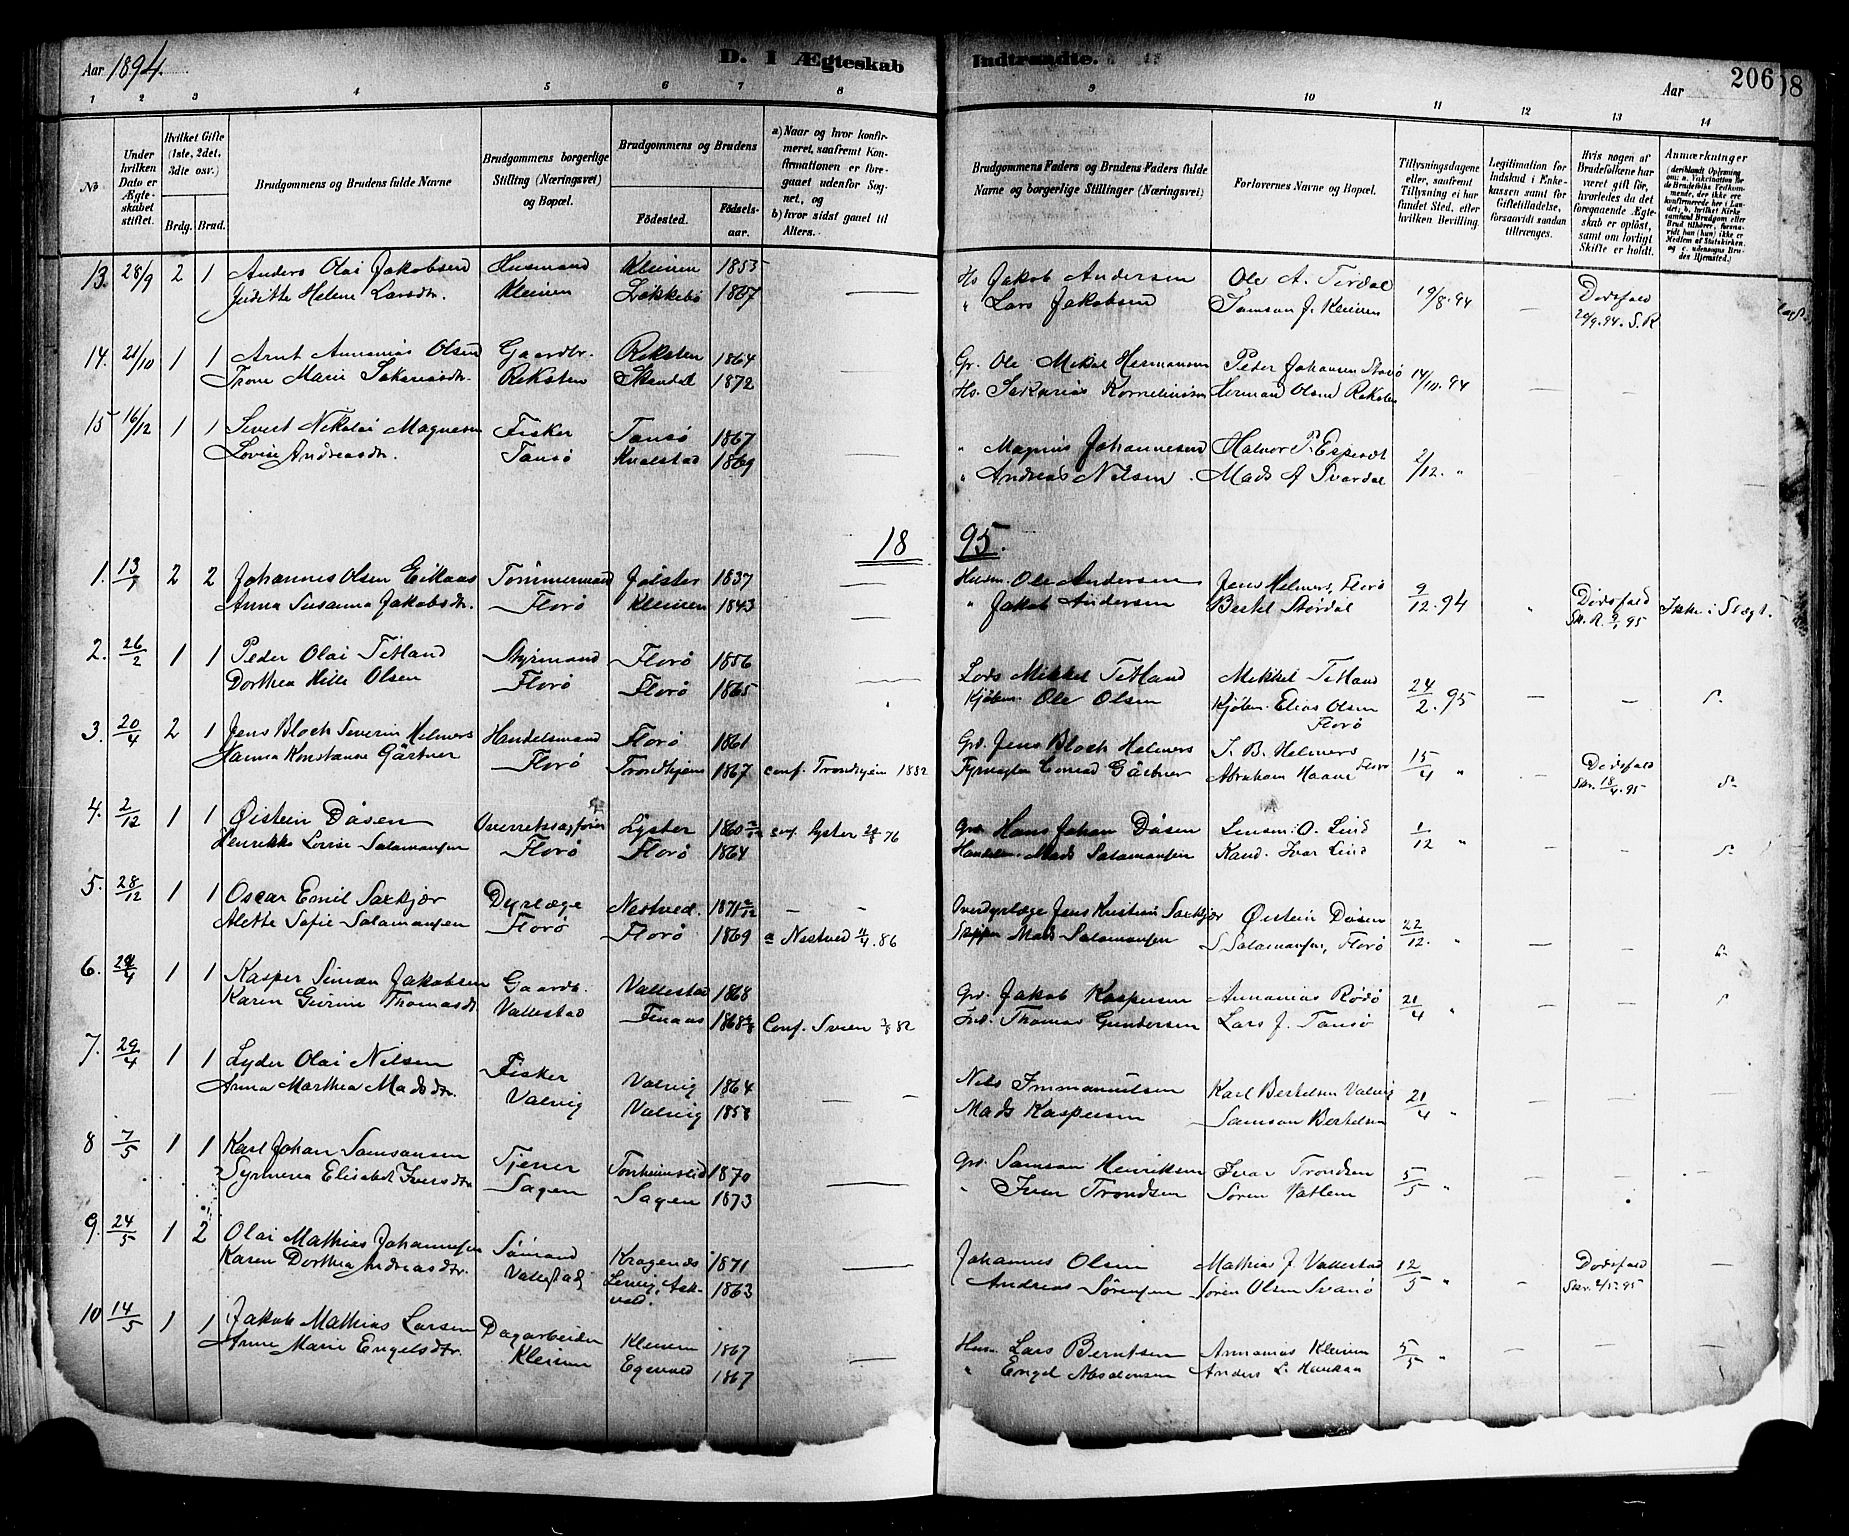 Aar 1894.
D. I Ægteskab
Indtraadte.
Aar
206
08
1 2 3 4 5 6 7 8
9 10 11 12 13 14
No
Under hvilken Dato er Ægteskabet stiftet.
Hvilket Gifte (1ste, 2det, 3die osv.)
Brdg. Brud.
Brudgommens og Brudens fulde Navne
Brudgommens borgerlige Stilling (Næringsvei) og Bopæl.
Brudgommens og Brudens
Fødested.
Fødsels-aar.
a) Naar og hvor konfirmeret, saafremt Konfirmationen er foregaaet udenfor Sognet, og
b) hvor sidst gaaet til Alters.
Brudgommens Faders og Brudens Faders fulde Navne og borgerlige Stillinger (Næringsvei)
Forlovernes Navne og Bopæl.
Tillysningsdagene eller, saafremt Tillysning ei har fundet Sted, efter hvilken Bevilling.
Legitimation for Indskud i Enkekassen samt for Giftetilladelse, forsaavidt saadan tiltrænges.
Hvis nogen af Brudefolkene har været gift før, hvorledes da det foregaaende Ægteskab er opløst, samt om lovligt Skifte er holdt.
Anmærkninger
13. 28/9 2 1 Anders Olai Jakobsen Husmand Kleiven 1853 — Hs Jakob Andersen Ole A. Terdal 19/8. 94 — Dødsfald
Juditte Helene Larsdtr. Kleiven Løkkebø 1867 " Lars Jakobsen Samson J. Kleiven 20/9.94. S.R
14. 21/10 1 1 Arnt Annanias Olsen Gaardbr. Reksten 1864 — Gr. Ole Mikal Hermansen Peder Johansen Stavø 14/10. 94 — —
Trone Marie Sakariasdtr. Reksten Skudal 1872 Hs. Sakarias Kornelinssen Herman Olsen Reksten
15 16/12 1 1 Sivert Nikolai Magnesen Fisker Tansø 1867 — " Magnus Johannesen Halvor P. Espesæt 2/12. " — —
Lovise Andreasdtr. Tansø Kvalstad 1869 " Andreas Nilsen Mads A Svardal
18 95.
1. 13/1 2 2 Johannes Olsen Eikaas Tømmermand Jølster 1837 — Husm. Ole Andersen Jens Helmers, Florø 9/12. 94 " Dødsfald Ikke i Slægt.
Anna Susanna Jakobsdtr. Florø Kleiven 1843 " Jakob Andersen Bertel Størdal
2. 26/2 1 1 Peder Olai Tetland Styrmand Florø 1856 — Lods Mikkel Tetland Mikkel Tetland 24/2. 95 — —
Dorthea Hille Olsen Florø Florø 1865 Kjøbm. Ole Olsen Kjøbm. Elias Olsen
Florø
3. 20/4 2 1 Jens Bloch Severin Helmers Handelsmand Florø 1861 Grd. Jens Bloch Helmers J. B. Helmers 15/4 " — Dødsfald
Hanna Konstanse Gärtner Florø Trondhjem 1867 conf. Trondhjem 1882 Fyrvogter Conrad Gärtner Abraham Haave Florø Skr. 18/4. 95
4. 2/12 1 1 Øistein Døsen Overretssagfører Lyster 1860 conf. Lyster 76 Grd. Hans Johan Døsen Lensm: O. Lind 1/12 " — —
Henrikke Lovise Salamonsen Florø Florø 1864 Handelsm. Mads Salamonsen Kand. Ivar Lind
5. 28/12 1 1 Oscar Emil Saxkjær Dyrlæge Nestved. 1871 — — Overdyrlæge Jens Kristian Saxkjær Øistein Døsen 22/12. " — —
Alette Sofie Salamonsen Florø Florø 1869 a Nestved 86 Skipper Mads Salamonsen S Salamonsen, Florø
6. 24/4 1 1 Kasper Simon Jakobsen Gaardb. Vallestad 1868 Grd. Jakob Kaspersen Annanias Rødø 21/4 " — —
Karen Gurine Thomasdtr Vallestad Finaas 1868 Conf. Sveen 82 Ind. Thomas Gundersen Lars J. Tansø
7. 29/4 1 1 Lyder Olai Nilsen Fisker Valvig 1864 — — Nils Immanuelsen Karl Bertelsen Valvig 21/4 " — —
Anna Marthea Madsdtr. Valvig Valvig 1858 Mads Kaspersen Samson Bertelsen
8 7/5 1 1 Karl Johan Samsonsen Tjener Tonheimslid 1870 — Grd. Samson Henriksen Ivar Trondsen 5/5 " — — —
Syrmena Elisabet Iversdtr Sagen Sagen 1873 " Iver Trondsen Søren Vatlem
9. 24/5 1 2 Olai Mathias Johannesen Sømand Kragenæs 1871 Johannes Olsen Mathias J. Vallestad 12/5 " — Dødsfald —
Karen Dorthea Andreasdtr. Vallestad Lervig, Askvold. 1863 Andreas Sørensen Søren Olsen Svanø
10 14/5 1 1 Jakob Mathias Larsen Dagarbeider Kleiven 1867 — Husm. Lars Berntsen Annanias Kleiven 5/5 " — — —
Anne Marie Engelsdtr. Kleiven 1867 " Engel Absalonsen Anders L. Hovdan